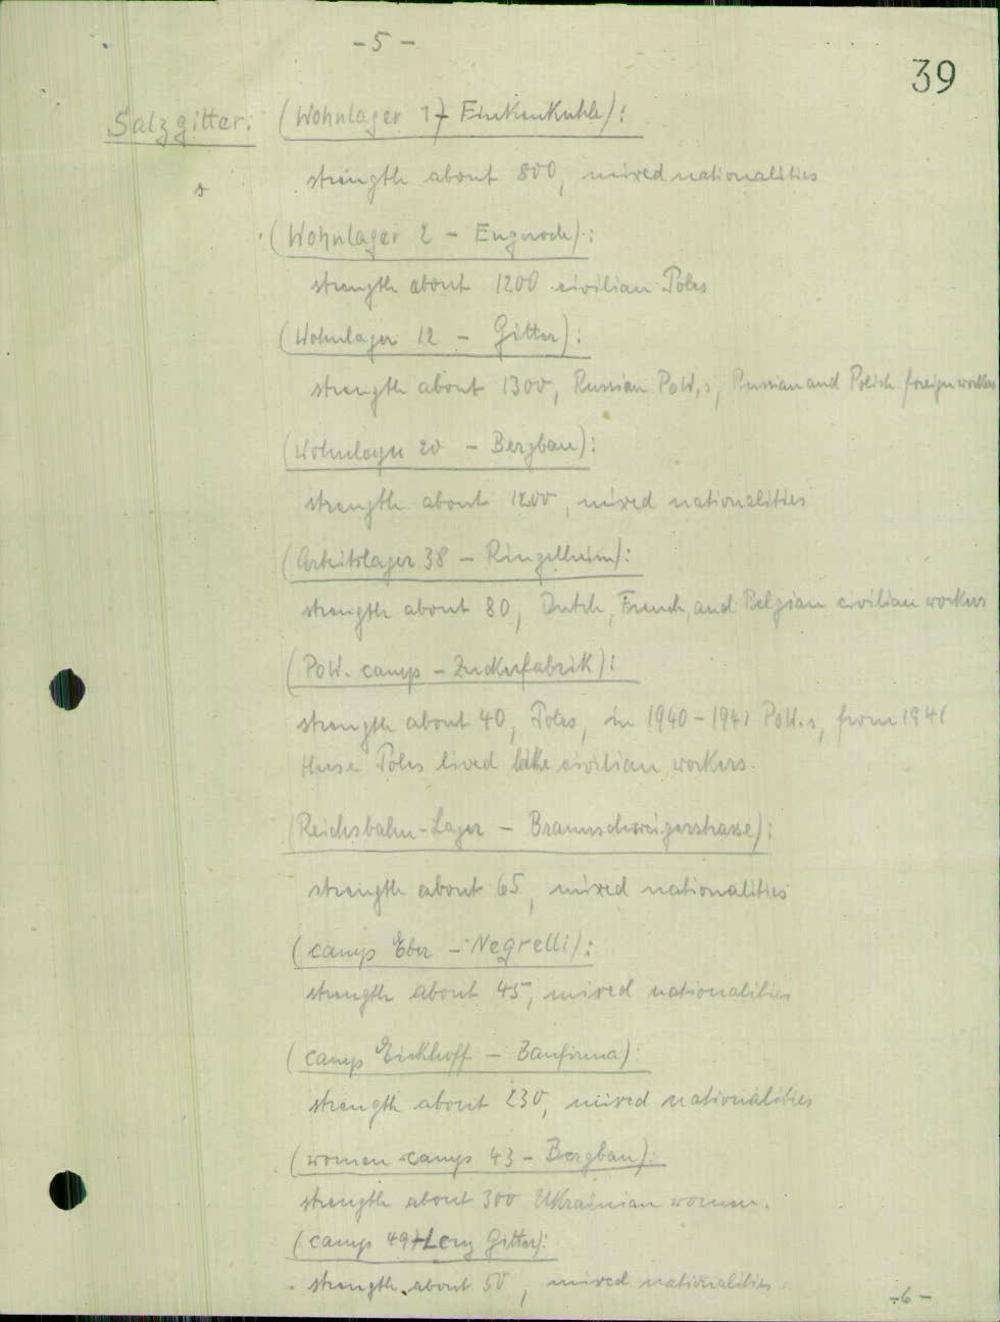 - 5 -
39
Salzgitter: (Wohnlager 17 Finkenkuhle):
strength about 800, mixed nationalities
(Wohnlager 2 - Engerode):
strength about 1200 civilian Poles
(Wohnlager 12 - Gitter):
strength about 1300, Russian PoW,s, Russian and Polish foreign workers
(Wohnlager 20 - Bergbau):
strength about 1200, mixed nationalities
(Arbeitslager 38 - Ringelheim):
strength about 80, Dutch, French, and Belgian civilian workers
(PoW. camp - Zuckerfabrik):
strength about 40, Poles, in 1940-1941 PoW.s, from 1941
these Poles lived like civilian workers.
(Reichsbahn-Lager - Braunschweigerstrasse):
strength about 65, mixed nationalities
(camp Eber - Negrelli):
strength about 45, mixed nationalities
(camp Eickhoff - Baufirma):
strength about 230, mixed nationalities
(women camp 43 - Bergbau):
strength about 300 Ukrainian women.
(camp 49 Gitter):
strength about 50, mixed nationalities
-6-